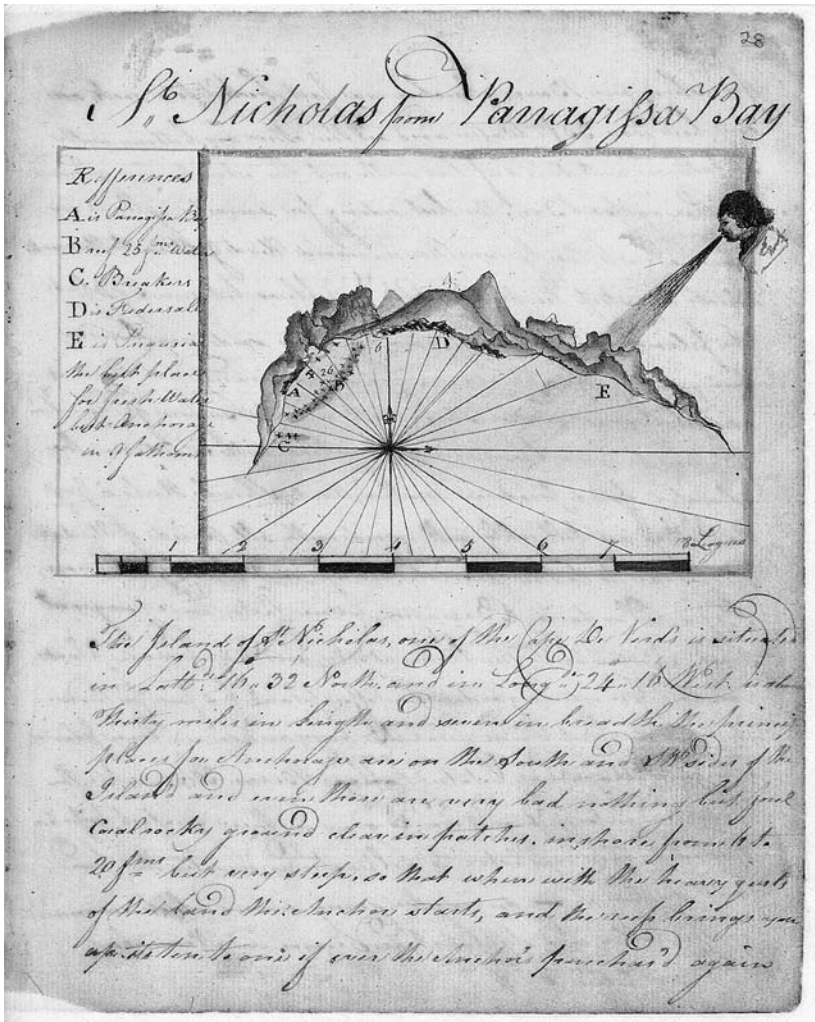 28
St. Nicholas from Panagissa Bay
Refferences
A is Panagissa Bay
B reef 25 fms Water
C. Breakers
D is Federsall
E is
the best place
for fresh Water
best Anchorage
in 9 fathoms
A
6
D
B
26
A
B
E
C
1 2 3 4 5 6 7 8 Leagues
The Island of St Nicholas, one of the Cape De Verds is situated
in Lattd. 16 " 32 North, and in Longd. 24 " 16 West is about
Thirty miles in length and seven in breadth the princip
places for Anchorage are on the South and SW sides of the
Island and even there are very bad nothing but foul
Coral rocky ground clear in patches. inshore from 6 to
20 fms but very steep. so that when with the heavy gusts
of the Land the Anchor starts, and the reef brings you
up its ten to one if ever the Anchor's purchas'd again